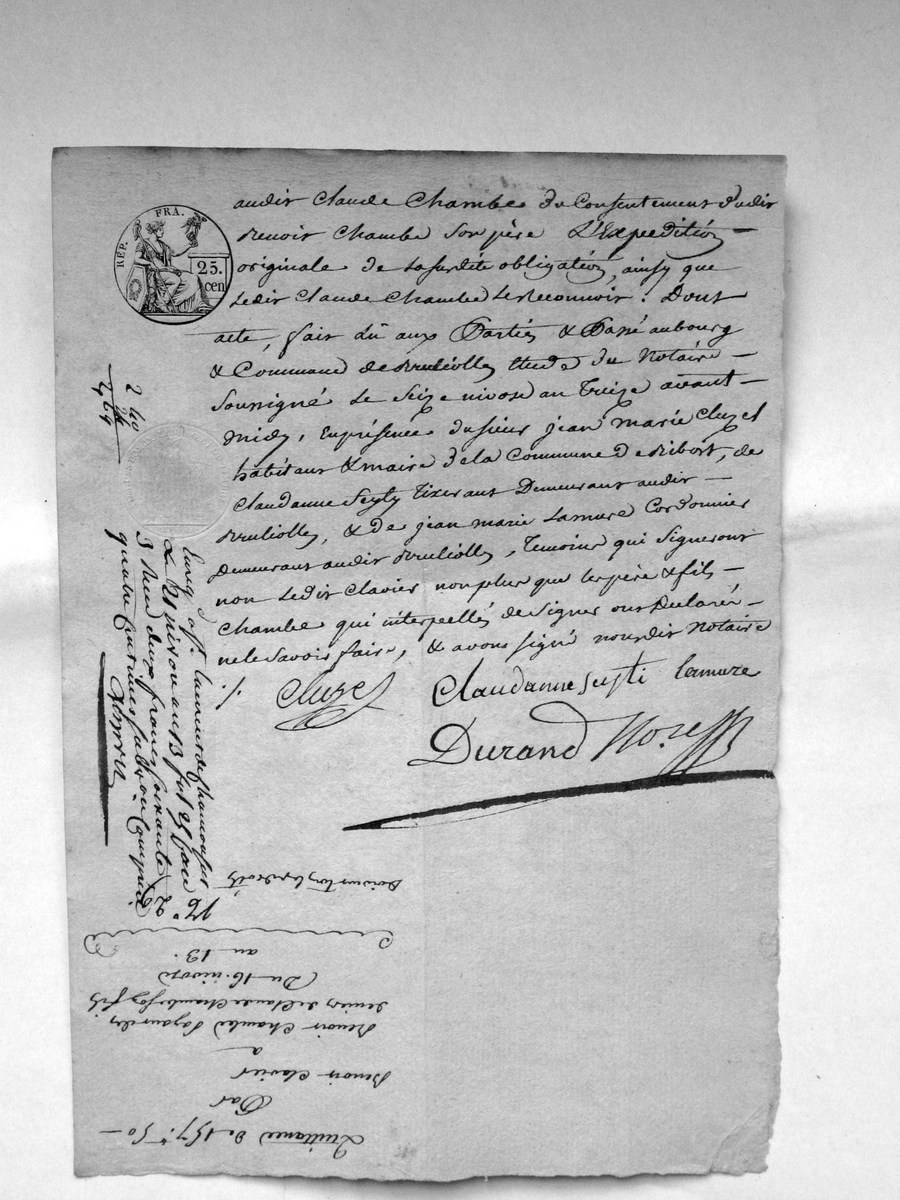 RÉP. FRA.
25.
cen
audit Claude Chambe du Consentement dudit
Benoit Chambe son père L'Expedition
originale de la susdite obligation, ainsy que
Ledit Claude Chambe le Reconnoit : Dont
acte, fait Lû aux Parties & Passé au bourg
& Commune de Brulliolles Etude du Notaire
Soussigné Le Seize nivose an Treize avant
midy, En présence du sieur jean marie Cluzel
habitant & maire de la Commune de Ribort, de
Claudanne Seyty Tixerant Demeurant audit
Brulliolles, & de jean marie Lamure Cordonnier
Demeurant audit Brulliolles, Temoins qui Signeront
non Ledit Clavier non plus que les père & fils
Chambe qui interpellés de Signer ont Déclaré
ne le Savoir faire, & avons signé nousdit Notaire
./. Cluzel Claudanne seyti lamure
Durand Nore
2 40
24
Le 21 nivose an 13 fol 25
3 Reçu deux francs soixante
quatre Centimes subvon Comprise
Quittance de 157.# 50
Par
Benoit Clavier
a
Benoit Chambe Payant des
deniers de Claude Chambe son fils
Du 16. nivose
an 13.